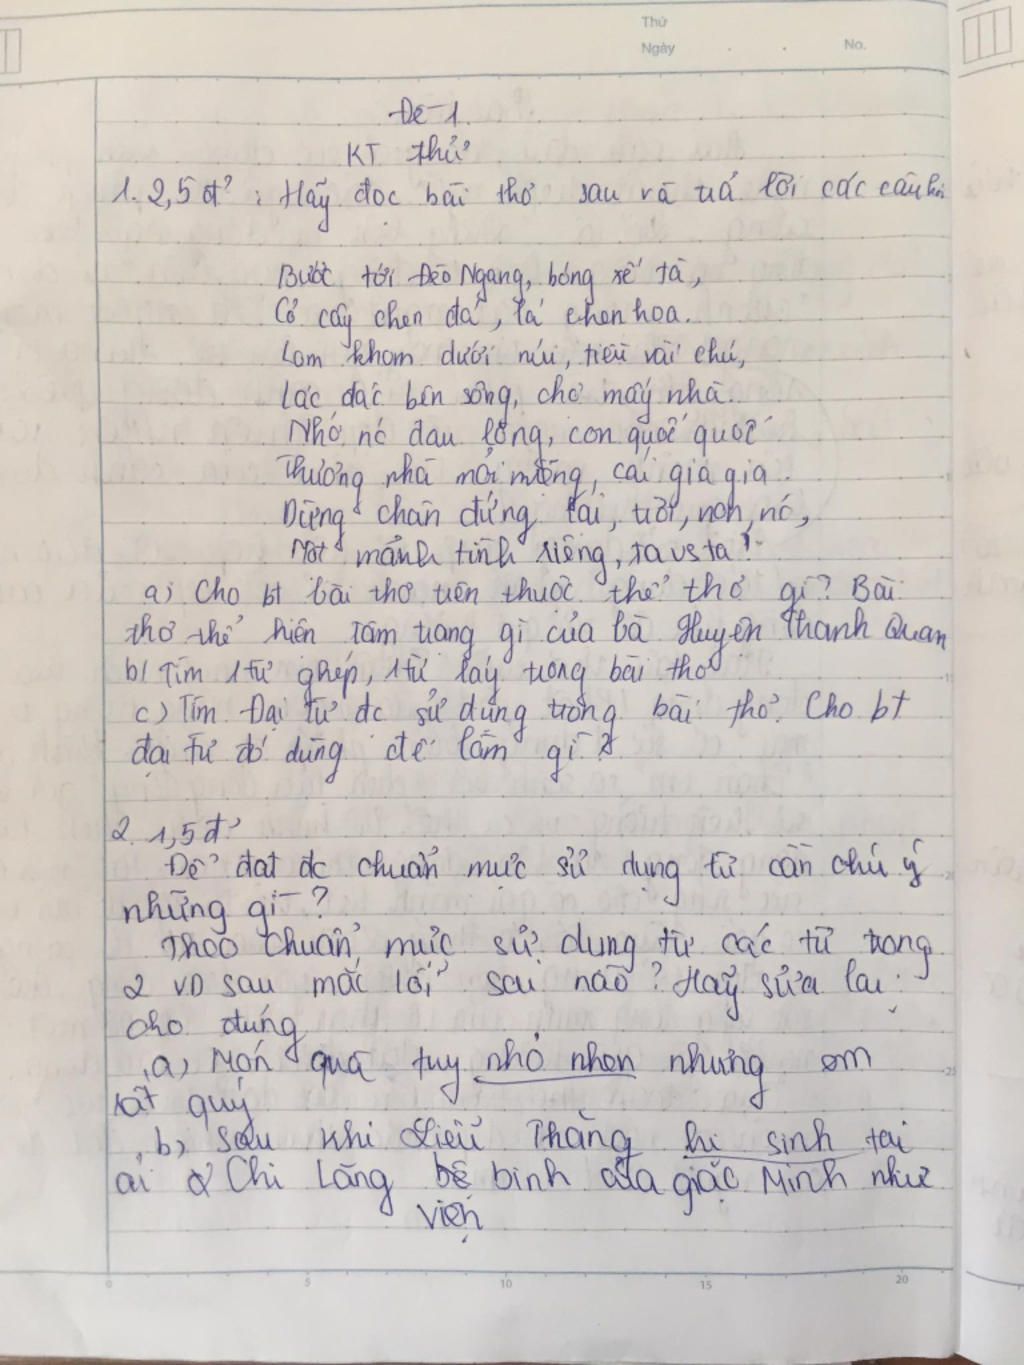 Thứ
Ngày . . No.
Đề 1.
KT thử
1. 2,5 đ' : Hãy đọc bài thơ sau và trả lời các câu hỏi
Bước tới Đèo Ngang, bóng xế tà,
Cỏ cây chen đá, lá chen hoa.
Lom khom dưới núi, tiều vài chú,
Lác đác bên sông, chợ mấy nhà.
Nhớ nó đau lòng, con quốc quốc
Thương nhà mỏi miệng, cái gia gia.
Dừng chân đứng lại, trời, non, nó,
Một mảnh tình riêng, ta vs ta!
a) Cho bt bài thơ trên thuộc thể thơ gì? Bài
thơ thể hiện tâm trạng gì của bà Huyện Thanh Quan
b) Tìm 1 từ ghép, 1 từ láy trong bài thơ
c) Tìm Đại từ đc sử dụng trong bài thơ. Cho bt
đại từ đó dùng để làm gì?
2. 1,5 đ'
Để đạt đc chuẩn mực sử dụng từ cần chú ý
những gì?
Theo chuẩn mực sử dụng từ các từ trong
2 VD sau mắc lỗi sai nào? Hãy sửa lại
cho đúng
a) Món quà tuy nhỏ nhen nhưng em
rất quý
b) Sau khi Liễu Thăng hi sinh tại
ải ở Chi Lăng bè binh của giặc Minh như
viện
0 5 10 15 20